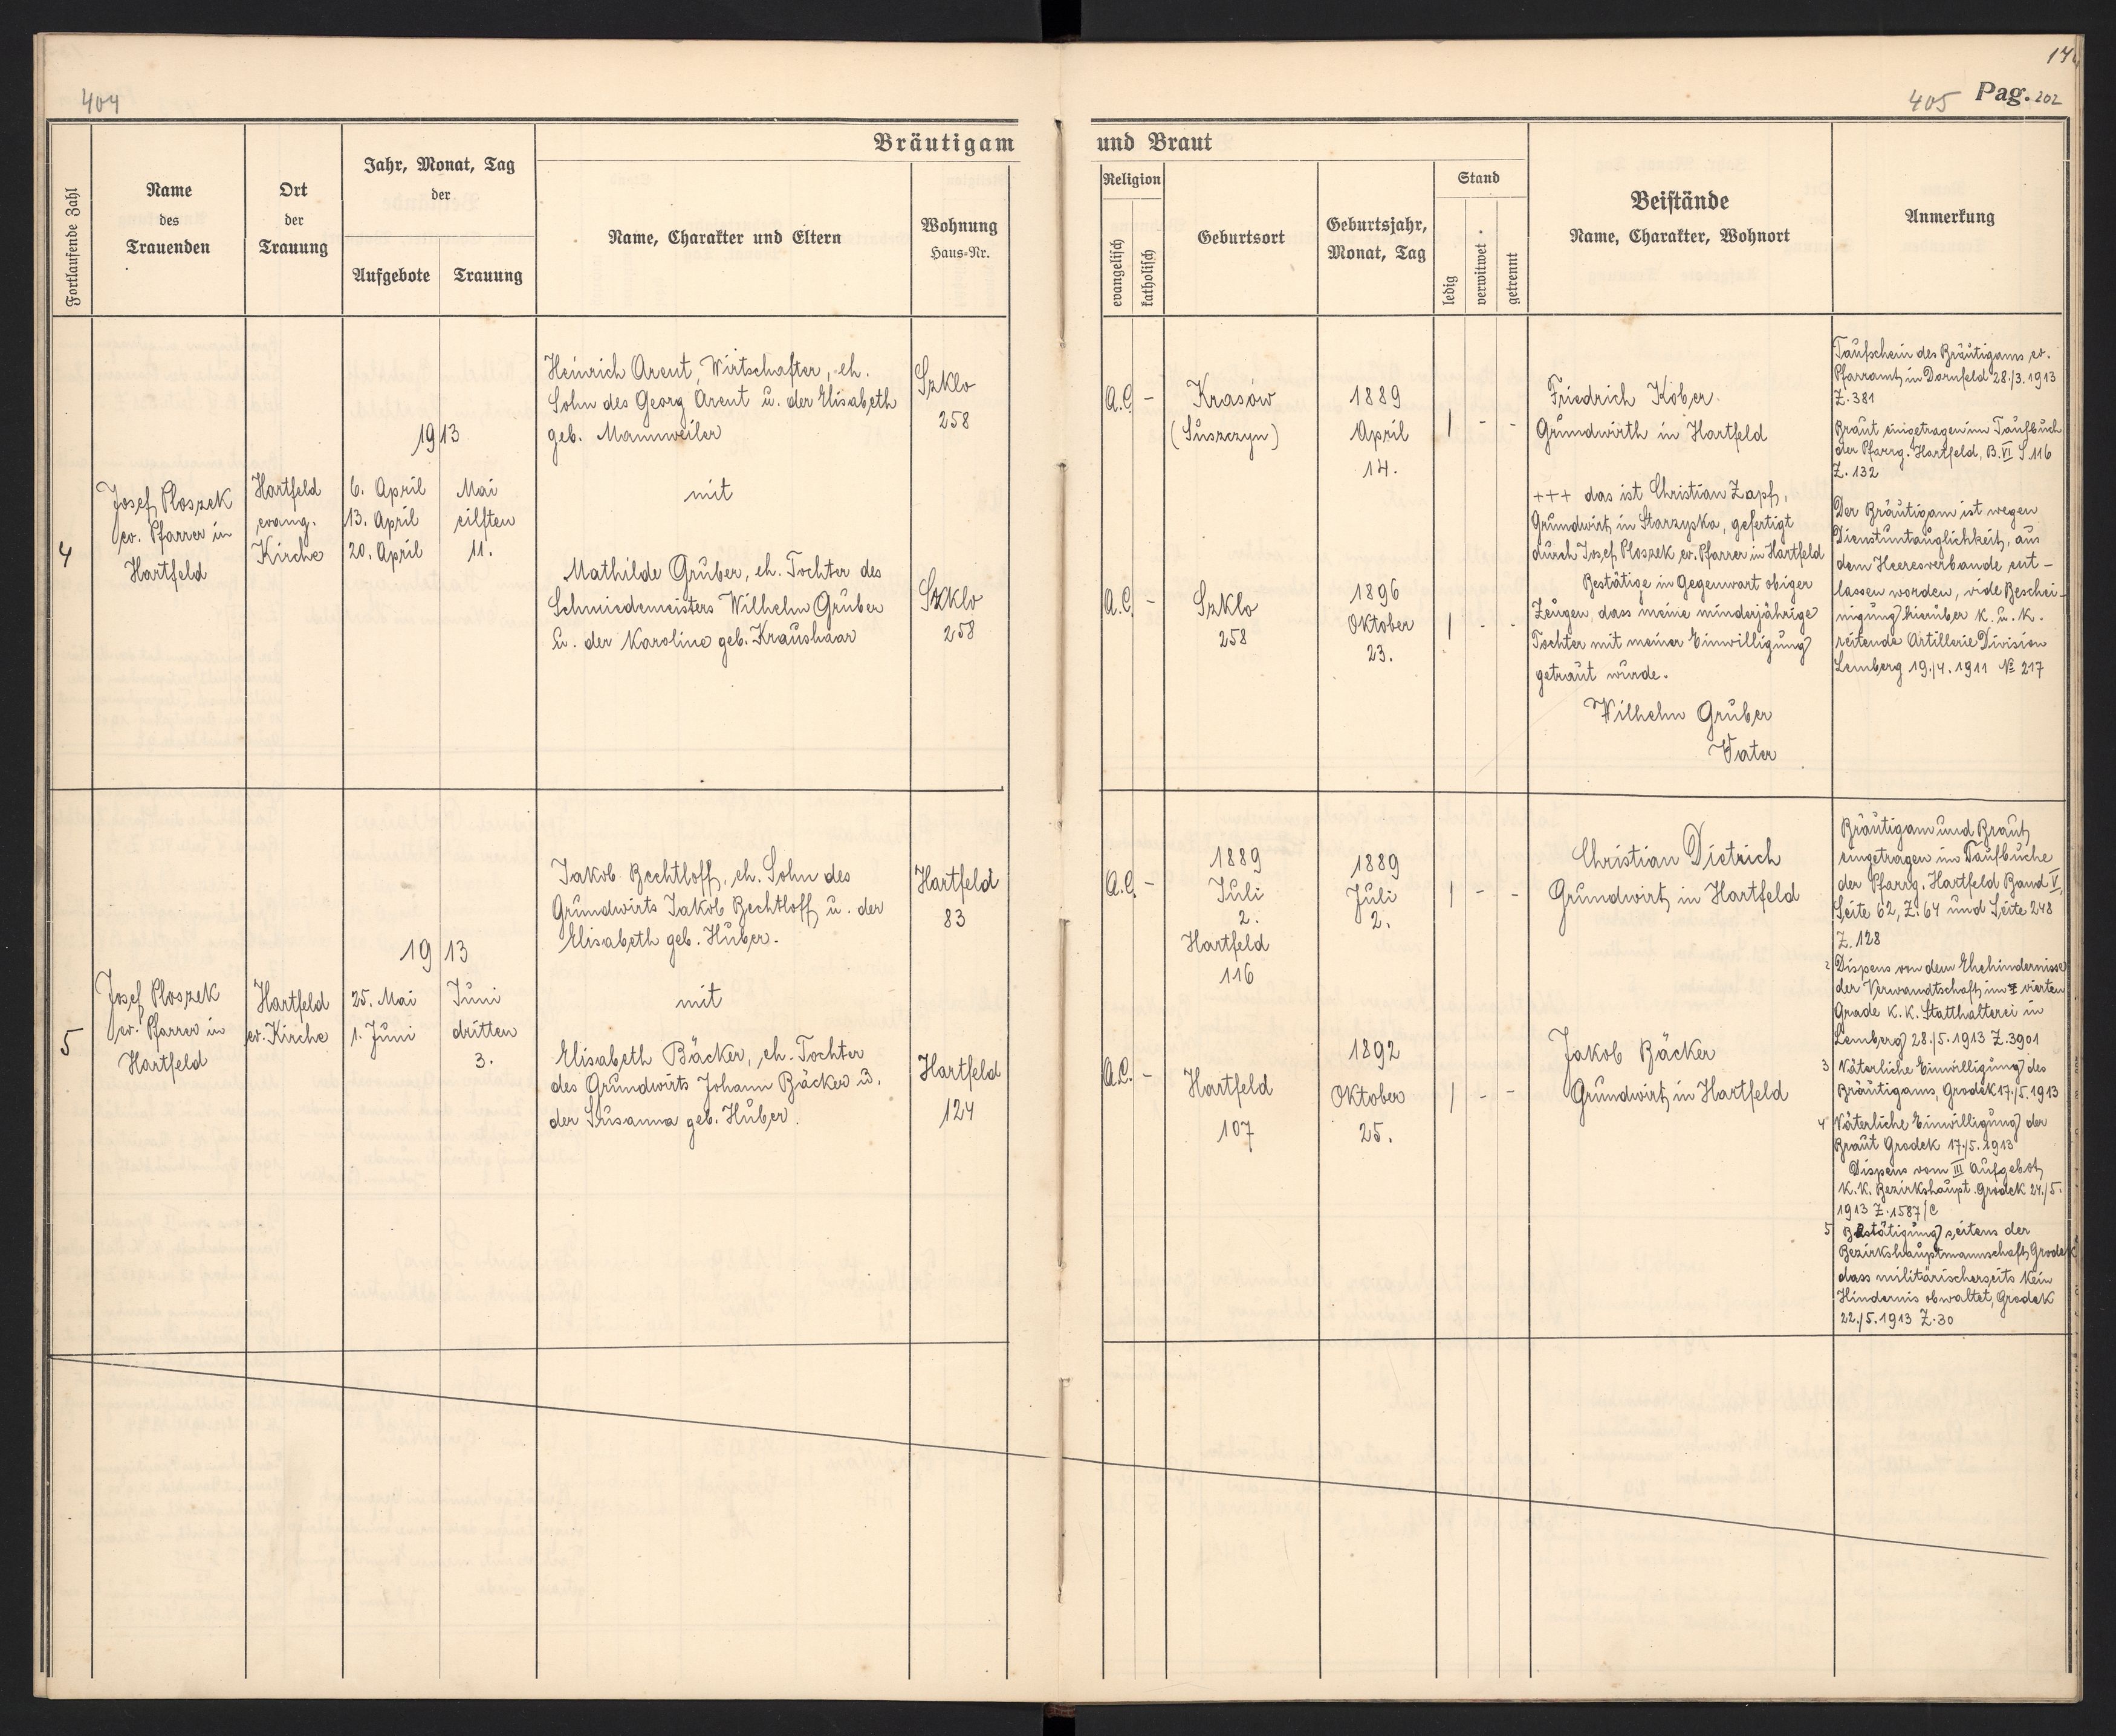 404
Bräutigam
Fortlaufende Zahl
Name
des
Trauenden
Ort
der
Trauung
Jahr, Monat, Tag
der
Aufgebote
Trauung
Name, Charakter und Eltern
Wohnung
Haus-Nr.
4
Josef Ploszek
ev. Pfarrer in
Hartfeld
Hartfeld
evang.
Kirche
1913
6. April
13. April
20. April
Mai
eilften
11.
Heinrich Arent, Wirtschafter, eh.
Sohn des Georg Arent u. der Elisabeth
geb. Mannweiler
mit
Mathilde Gruber, eh. Tochter des
Schmiedemeisters Wilhelm Gruber
u. der Karoline geb. Kraushaar
Szklo
258
Szklo
258
5
Josef Ploszek
ev. Pfarrer in
Hartfeld
Hartfeld
ev. Kirche
1913
25. Mai
1. Juni
Juni
dritten
3.
Jakob Bechtloff, eh. Sohn des
Grundwirts Jakob Bechtloff u. der
Elisabeth geb. Huber.
mit
Elisabeth Bäcker, eh. Tochter
des Grundwirts Johann Bäcker u.
der Susanna geb. Huber.
Hartfeld
83
Hartfeld
124
405 Pag. 202
und Braut
Religion
evangelisch
katholisch
Geburtsort
Geburtsjahr,
Monat, Tag
Stand
ledig
verwitwet
getrennt
Beistände
Name, Charakter, Wohnort
Anmerkung
A.C. -
Krasów
(Suszczyn)
1889
April
14.
| - -
Friedrich Kober
Grundwirth in Hartfeld
+++ das ist Christian Zapf,
Grundwirt in Starzyska, gefertigt
durch Josef Ploszek ev. Pfarrer in Hartfeld
Bestätige in Gegenwart obiger
Zeugen, dass meine minderjährige
Tochter mit meiner Einwilligung
getraut wurde.
Wilhelm Gruber
Vater
A.C. -
Szklo
258
1896
Oktober
23.
| - -
Taufschein des Bräutigams, ev.
Pfarramt in Dornfeld 28./3. 1913
Z. 381
Braut eingetragen im Taufbuch
der Pfarrg. Hartfeld, B. VI S. 116
Z. 132
Der Bräutigam ist wegen
Dienstuntauglichkeit, aus
dem Heeresverbande ent-
lassen worden, vide Beschei-
nigung hierüber K. u. K.
reitende Artillerie Division
Lemberg 19./4. 1911 № 217
A.C. -
1889
Juli
2.
Hartfeld
116
1889
Juli
2.
| - -
Christian Dietrich
Grundwirt in Hartfeld
A.C. -
Hartfeld
107
1892
Oktober
25.
| - -
Jakob Bäcker
Grundwirt in Hartfeld
Bräutigam und Braut
eingetragen im Taufbuche
der Pfarrg. Hartfeld Band V,
Seite 62, Z. 64 und Seite 248
Z. 128
2 Dispens von dem Ehehindernisse
der Verwandtschaft im vierten
Grade K. K. Statthalterei in
Lemberg 28./5. 1913 Z. 3901
3 Väterliche Einwilligung des
Bräutigams, Grodek 17./5. 1913
4 Väterliche Einwilligung der
Braut Grodek 17./5. 1913
Dispens vom III Aufgebot,
K. K. Bezirkshaupt. Grodek 24./5.
1913 Z. 1587/C
5 Bestätigung seitens der
Bezirkshauptmannschaft Grodek
dass militärischerseits kein
Hindernis obwaltet, Grodek
22./5. 1913 Z. 30